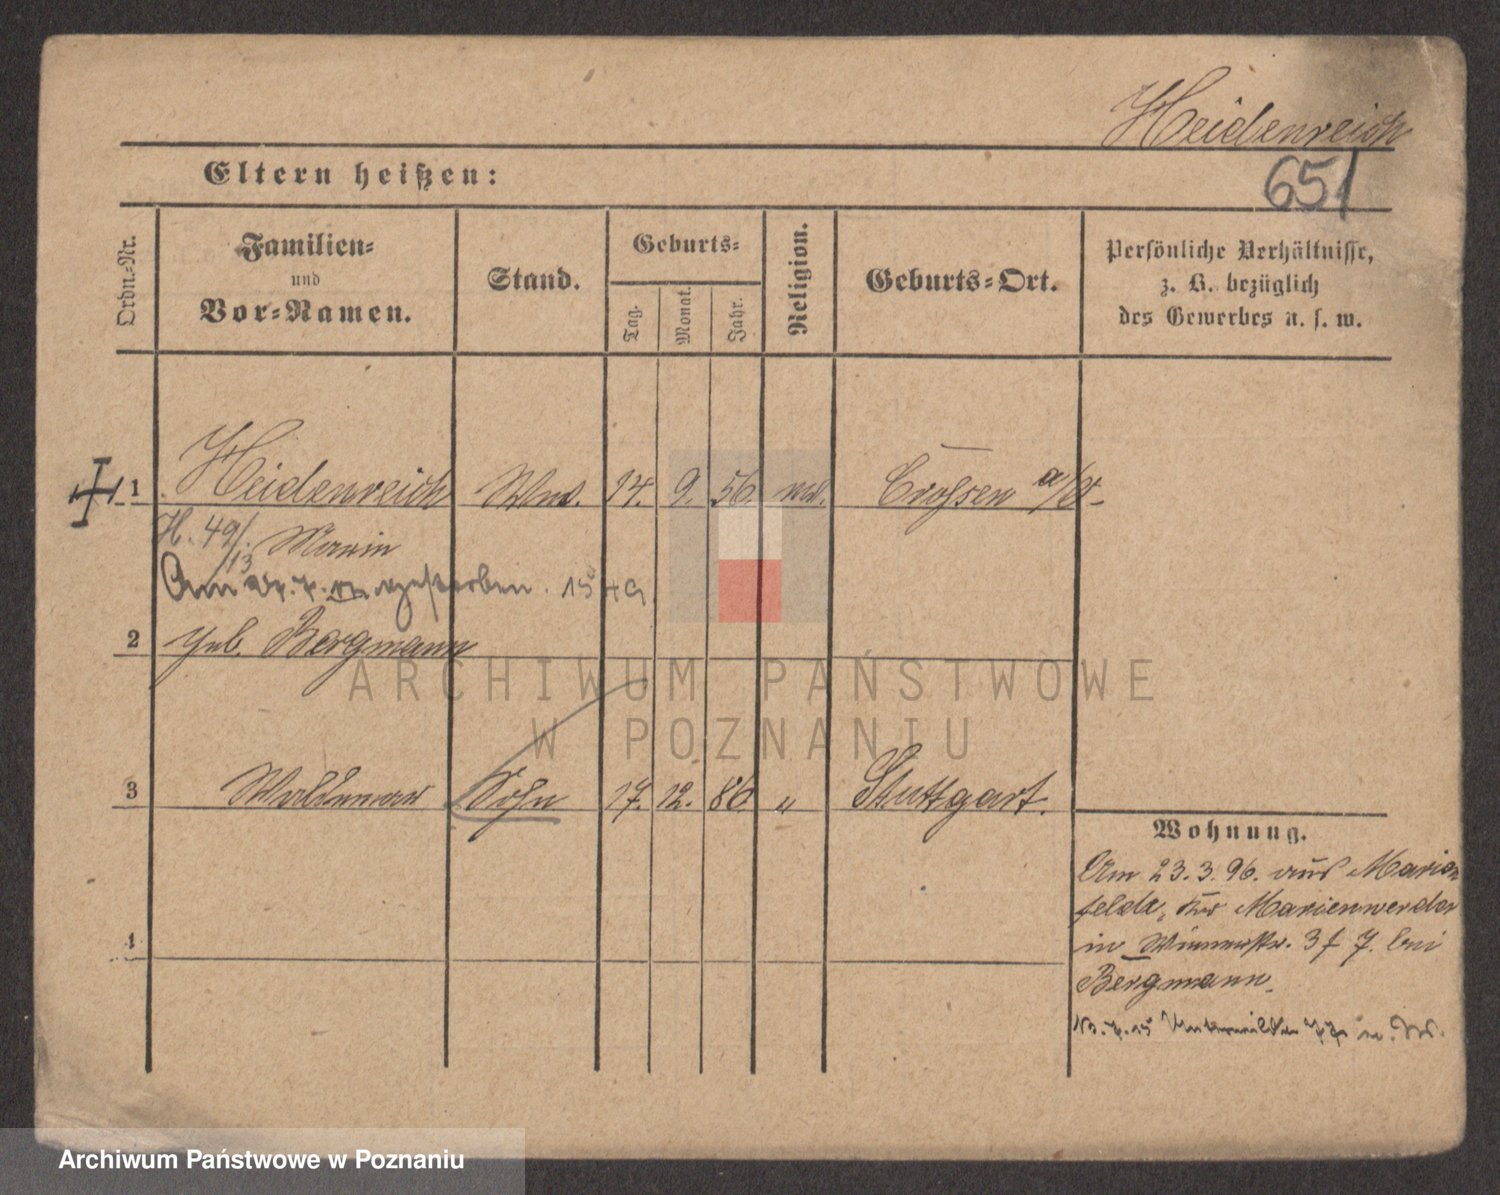 Heidenreich
651
Eltern heißen:
Ordn.-Nr.
Familien-
und
Vor-Namen.
Stand.
Geburts-
Tag.
Monat.
Jahr.
Religion.
Geburts-Ort.
Persönliche Verhältnisse,
z. B. bezüglich
des Gewerbes u. s. w.
1 Heidenreich Wwe. 14. 9. 56 Crossen a/O.
H. 49/13 Marie
Am gestorben. 15 49
2 geb. Bergmann
ARCHIWUM PAŃSTWOWE
W POZNANIU
3 Waldemar Sohn 17. 12. 86 " Stuttgart.
4
Wohnung.
Am 23. 3. 96. aus Marien
felde, Krs Marienwerder
in 3 f 7. bei
Bergmann.
Archiwum Państwowe w Poznaniu